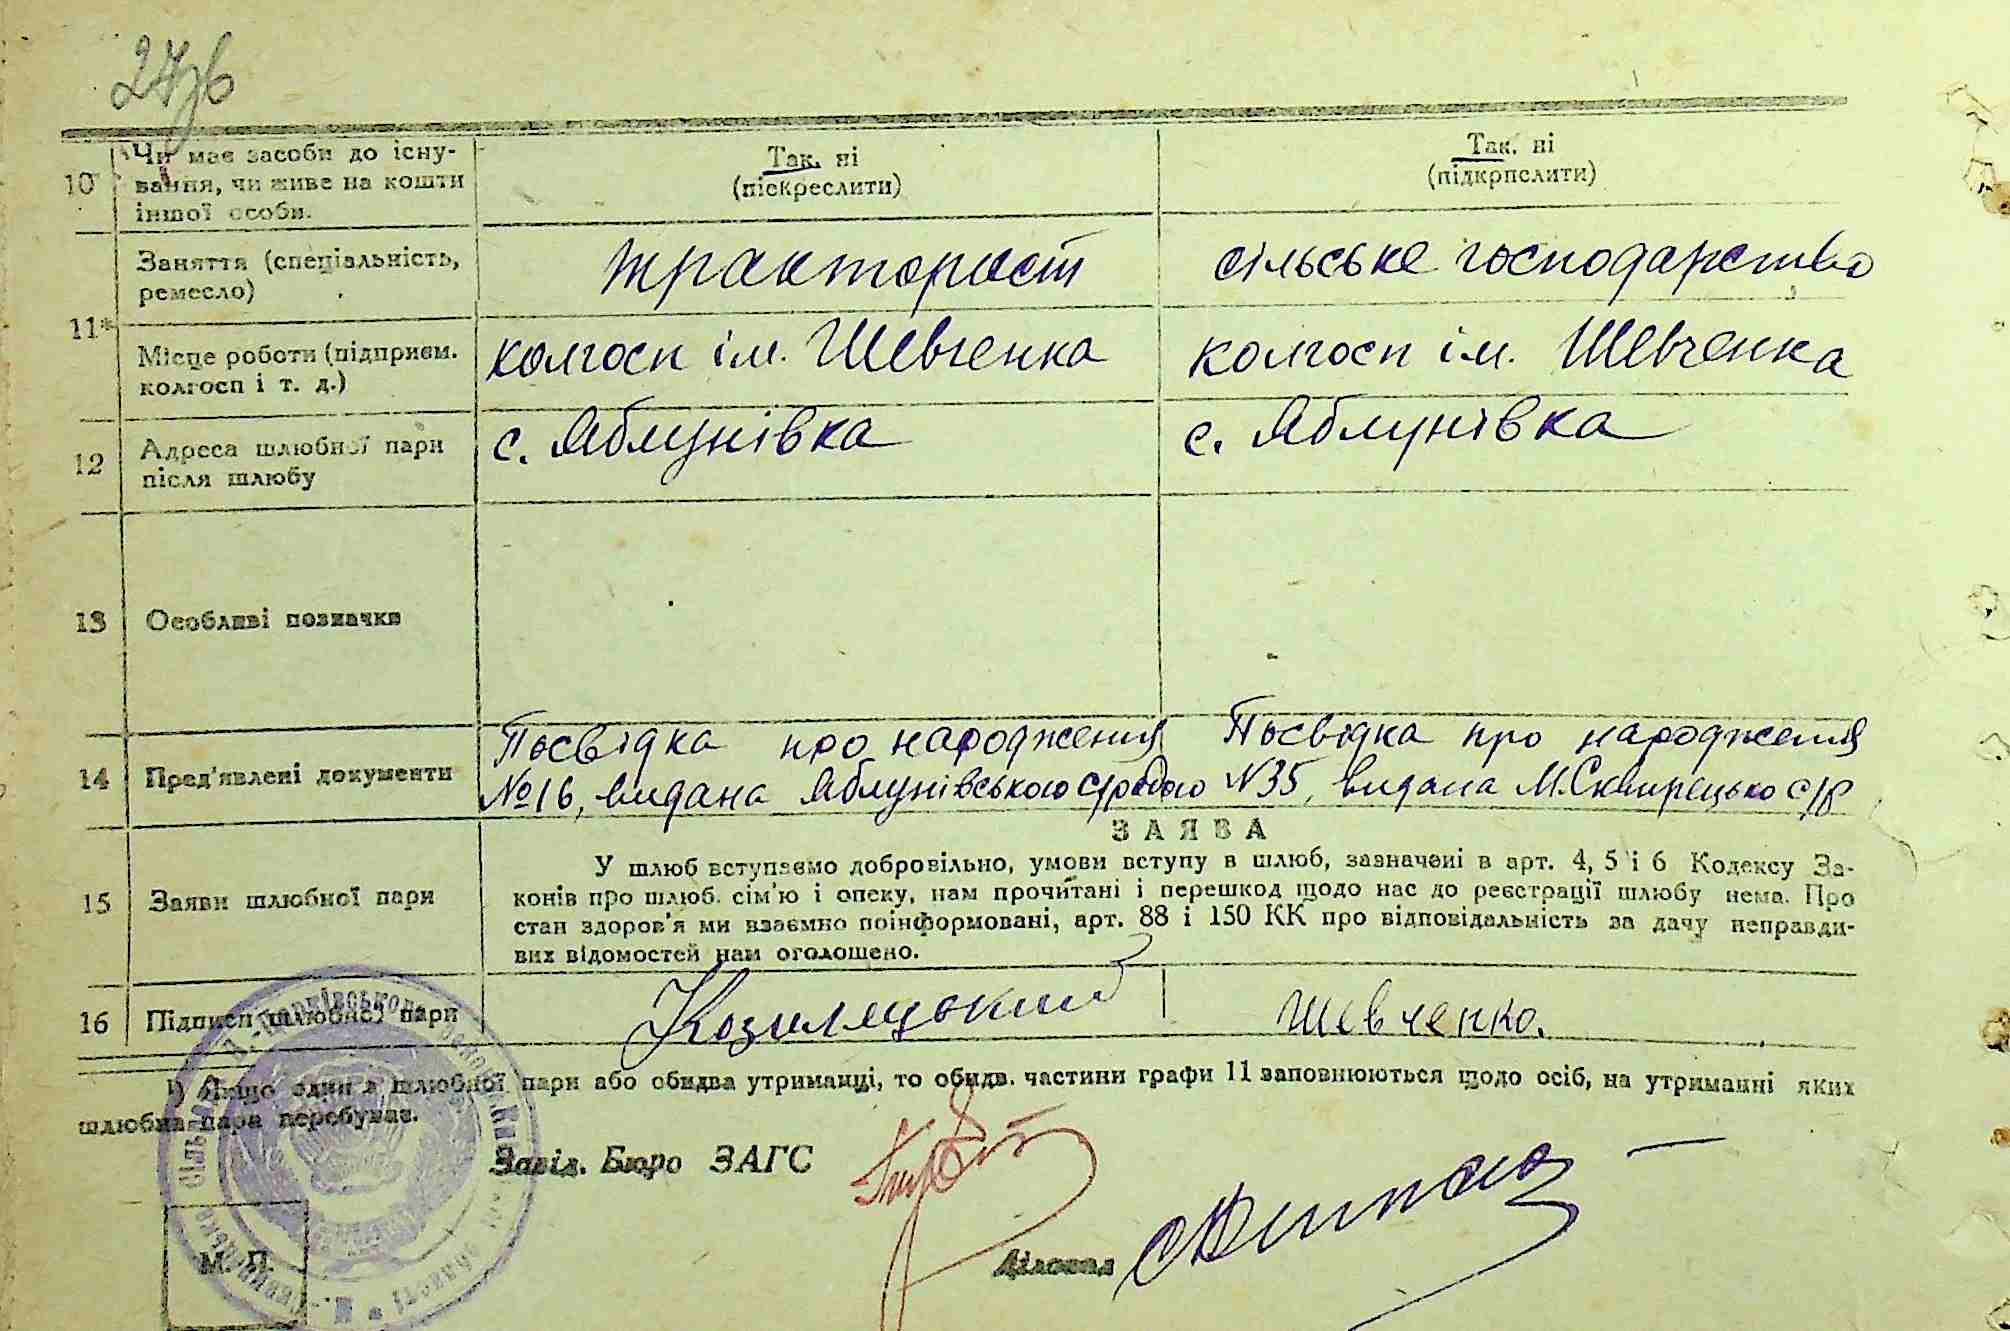 27зв
10 Чи має засоби до існу-
вання, чи живе на кошти
іншої особи.
Так, ні
(піскреслити)
Так, ні
(підкрпслити)
11* Заняття (спеціальність,
ремесло)
тракторист
сільське господарство
Місце роботи (підприєм.
колгосп і т. д.)
колгосп ім. Шевченка
колгосп ім. Шевченка
12 Адреса шлюбної пари
після шлюбу
с. Яблунівка
с. Яблунівка
13 Особливі позначки
14 Пред'явлені документи
Посвідка про народження
№16, видана Яблунівською с/радою
Посвідка про народження
N35, видана М.Сквирецько с/р
15 Заяви шлюбної пари
ЗАЯВА
У шлюб вступаємо добровільно, умови вступу в шлюб, зазначені в арт. 4, 5 і 6 Кодексу За-
конів про шлюб. сім'ю і опеку, нам прочитані і перешкод щодо нас до реєстрації шлюбу нема. Про
стан здоров'я ми взаємно поінформовані, арт. 88 і 150 КК про відповідальність за дачу неправди-
вих відомостей нам оголошено.
16 Підписи шлюбної пари
Козилецький
Шевченко.
¹) Якщо один з шлюбної пари або обидва утриманці, то обидв. частини графи 11 заповнюються щодо осіб, на утриманні яких
шлюбна пара перебуває.
Завід. Бюро ЗАГС
Діловод
М. П.